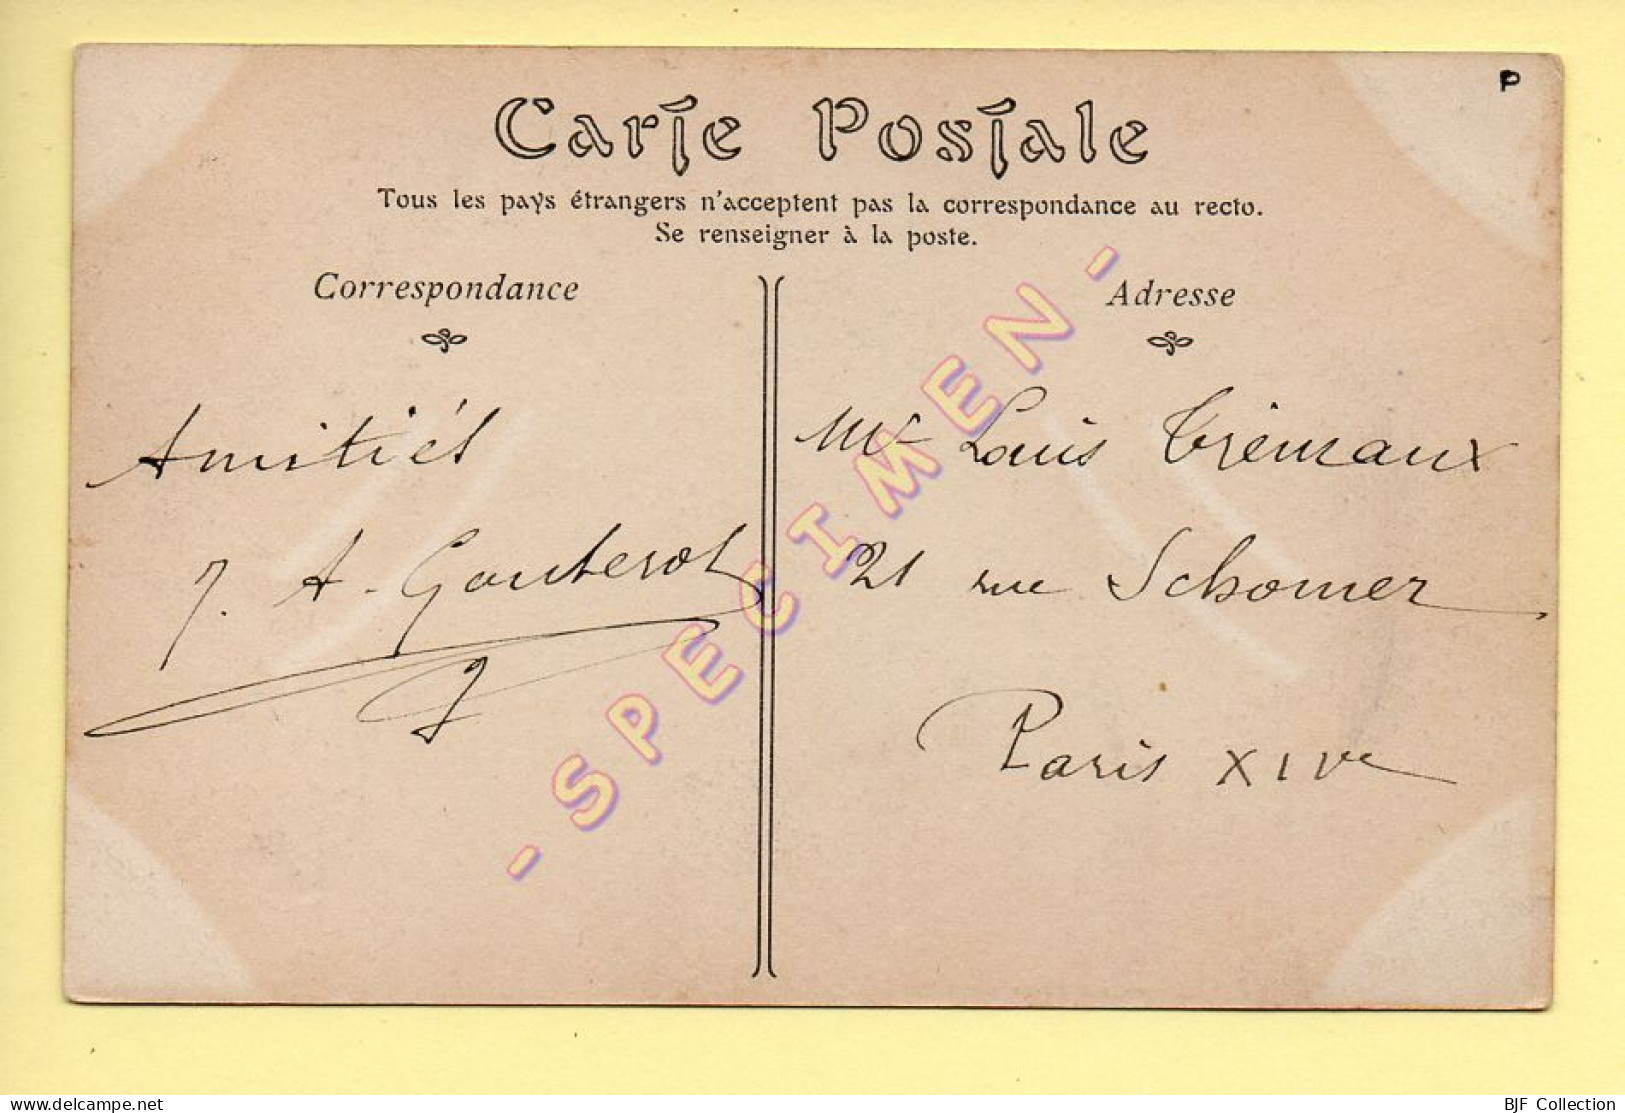 P
Carte Postale
Tous les pays étrangers n'acceptent pas la correspondance au recto.
Se renseigner à la poste.
Correspondance
Amitiés
J. A. Gouterot
Adresse
Mr Louis Trémaux
21 rue Schomer
Paris XIVe
- SPECIMEN -
www.delcampe.net
BJF Collection